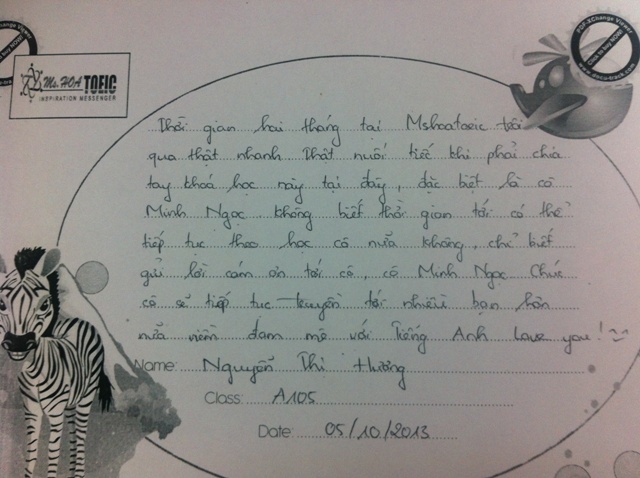 PDF-XChange Viewer
Click to buy NOW!
www.docu-track.com
Ms. HOA TOEIC
INSPIRATION MESSENGER
Thời gian hai tháng tại Mshoatoeic trôi
qua thật nhanh Thật nuối tiếc khi phải chia
tay khoá học này tại đây, đặc biệt là cô
Minh Ngọc. không biết thời gian tới có thể
tiếp tục theo học cô nữa không, chỉ biết
gửi lời cám ơn tới cô, cô Minh Ngọc Chúc
cô sẽ tiếp tục truyền tới nhiều bạn hơn
nữa niềm đam mê với Tiếng Anh Love you!
Name: Nguyễn Thị Hương
Class: A105
Date: 05/10/2013